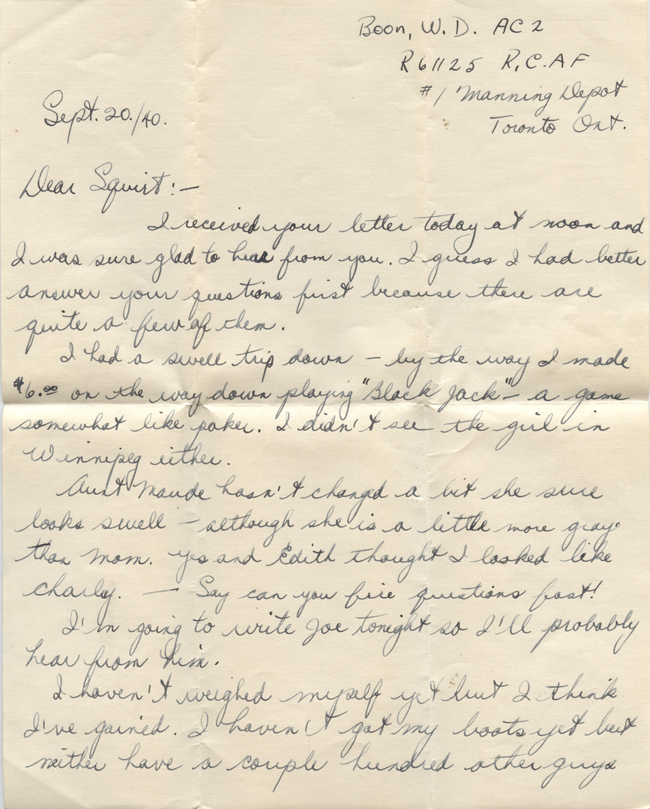 Boon, W.D. AC2
R61125 R.C.AF
#1 Manning Depot
Toronto Ont.
Sept. 20./40.
Dear Squirt:-
I received your letter today at noon and
I was sure glad to hear from you. I guess I had better
answer your questions first because there are
quite a few of them.
I had a swell trip down - by the way I made
$6.00 on the way down playing "Black Jack" - a game
somewhat like poker. I didn't see the girl in
Winnipeg either.
Aunt Maude hasn't changed a bit she sure
looks swell - although she is a little more gray
than Mom. Yes and Edith thought I looked like
Charly. - Say can you fire questions fast!
I'm going to write Joe tonight so I'll probably
hear from him.
I haven't weighed myself yet but I think
I've gained. I haven't got my boots yet but
neither have a couple hundred other guys